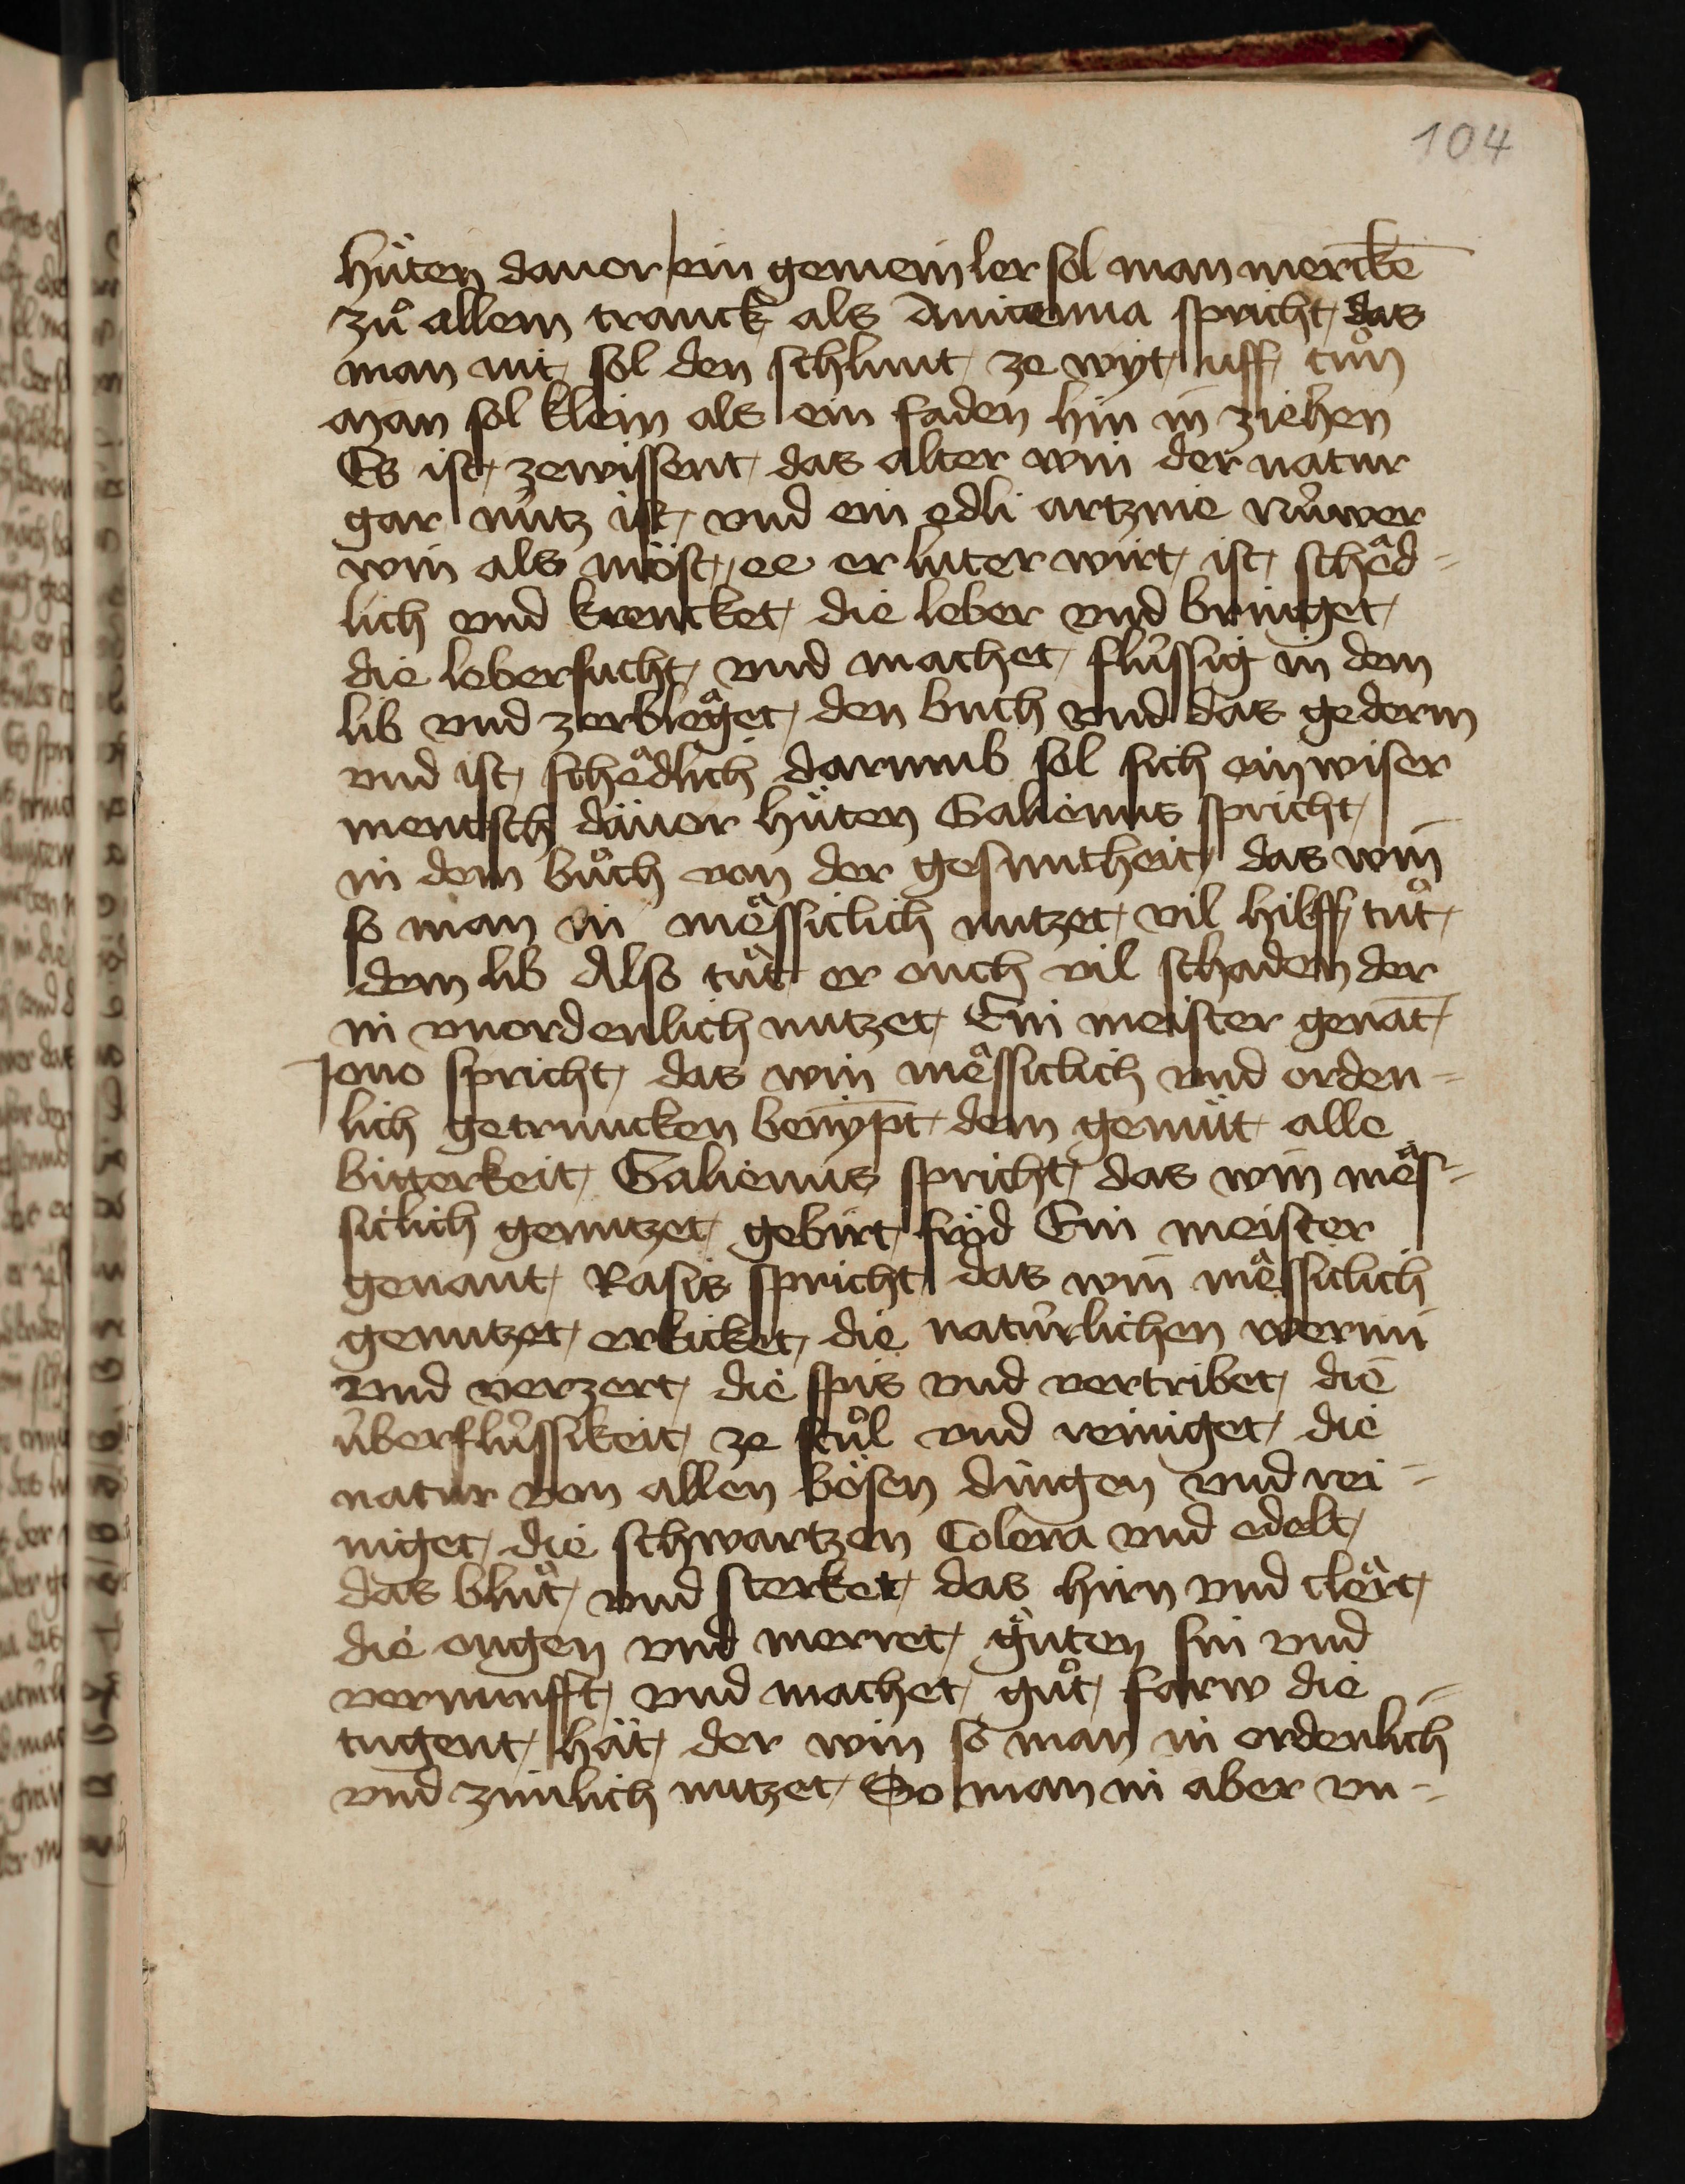 104
hüten dauor ein gemein ler sol man mercke̅
zů allem tranck als Auicenna spricht das
man nit sol den schlunt ze wyt uff tůn
man sol klein als ein faden hin in ziehen
Es ist zewissent das alter win der natur
gar nu̍tz ist vnd ein edli artznie Nu̍wer
win als möst ee er luter wirt ist schåd=
lich vnd krencket die leber vnd bringet
die lebersucht vnd machet flu̍ssig in dem
lib vnd zerbleͣget den buch vnd das gederm
vnd ist scheͣdlich darumb sol sich ein wiser
mentsch dauor hüten Galienus spricht
in dem bůch von der gesuntheit das win
so man in meͣssiclich nutzet vil hilff tůt
dem lib Also tůt er ouch vil schaden der
in vnordenlich nutzet Ein meister gena̅t
Jono spricht das win meͣssiclich vnd orden=
lich getruncken beny̅pt dem gemüt alle
bitterkeit Galienus spricht das win meͣs=
siclich genutzet gebirt fröd Ein meister
genant Rasis spricht das win meͣssiclich
genutzet erkicket die natu̍rlichen wermi
vnd verzert die spis vnd vertribet die
u̍berflu̍ssikeit ze stůl vnd reiniget die
natur von allen bösen dingen vnd rei=
niget die schwartzen Colera vnd edelt
das blůt vnd sterket das hirn vnd cleͣrt
die ougen vnd merret gůten sin vnd
vernunfft vnd machet gůt farw die
tugent hät der win so man in ordenlich
vnd zimlich nutzet So man in aber vn=